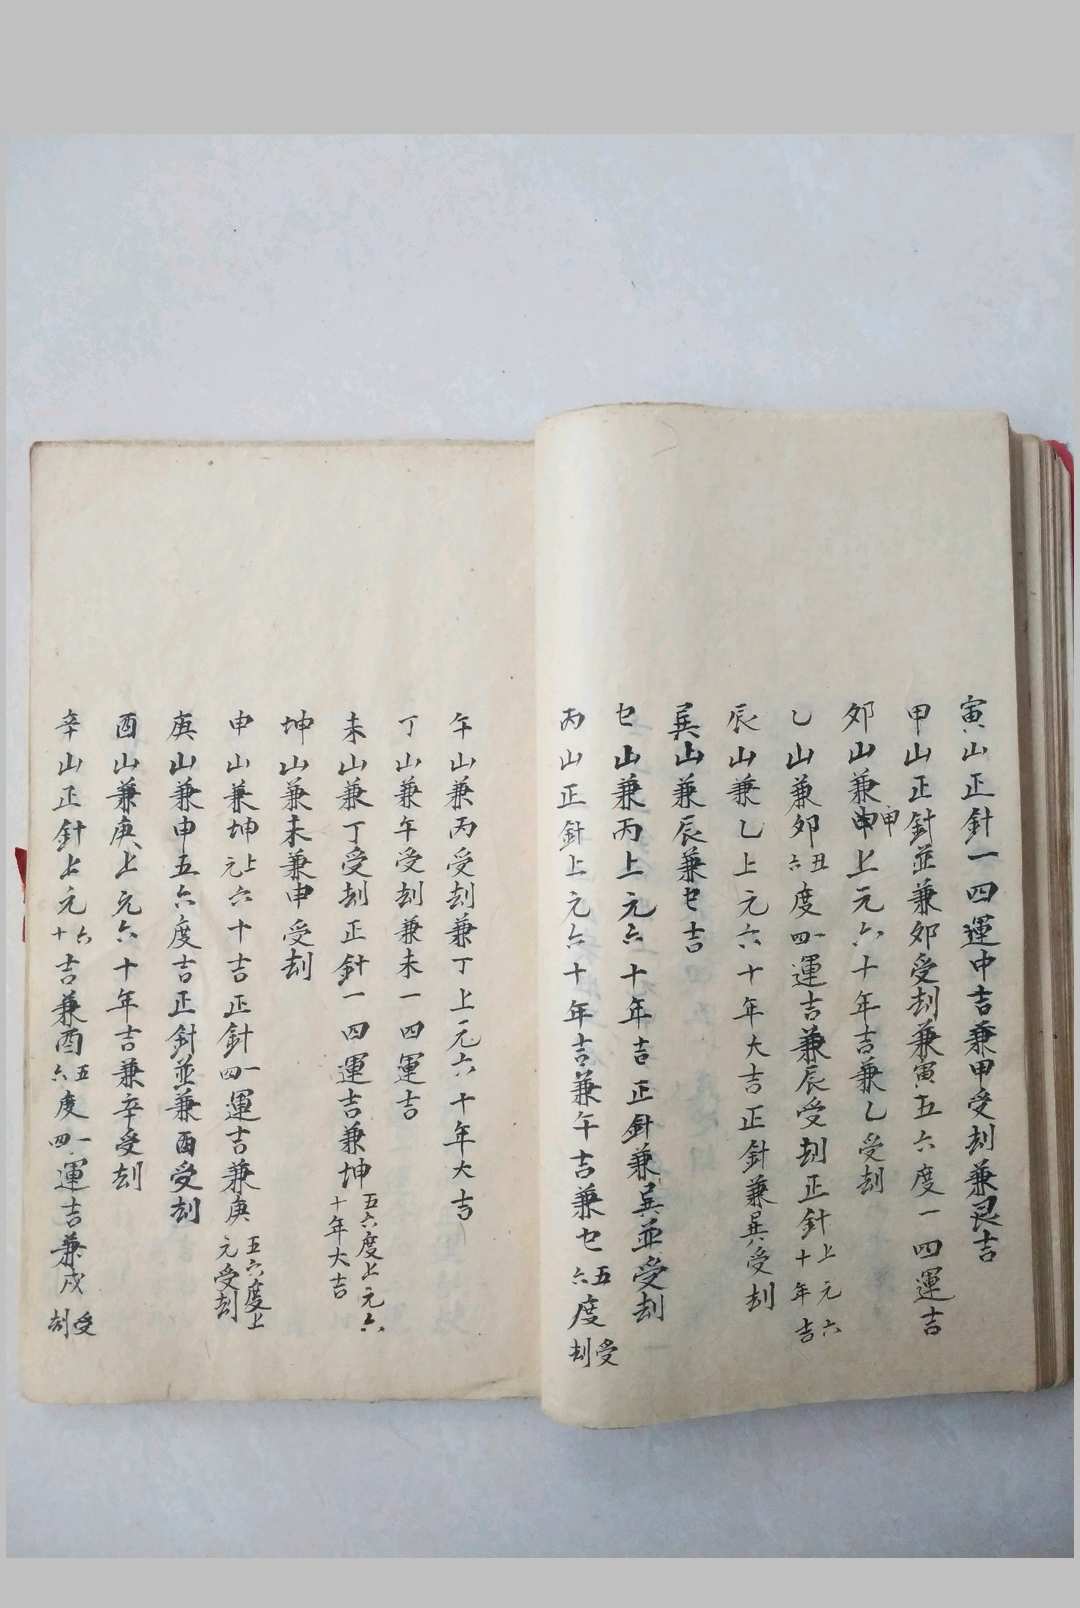 寅山正針一四運中吉兼甲受刼兼艮吉
甲山正針並兼夘受刼兼寅五六度一四運吉
夘山兼申甲上元六十年吉兼乙受刼
乙山兼夘丑六度一四運吉兼辰受刼正針上元六十年吉
辰山兼乙上元六十年大吉正針兼巽受刼
巽山兼辰兼巳吉
巳山兼丙上元六十年吉正針兼巽並受刼
丙山正針上元六十年吉兼午吉兼巳五六度受刼
午山兼丙受刼兼丁上元六十年大吉
丁山兼午受刼兼未一四運吉
未山兼丁受刼正針一四運吉兼坤五六度上元六十年大吉
坤山兼未兼申受刼
申山兼坤上元六十吉正針一四運吉兼庚五六度上元受刼
庚山兼申五六度吉正針並兼酉受刼
酉山兼庚上元六十年吉兼辛受刼
辛山正針上元六十吉兼酉五六度一四運吉兼戌受刼